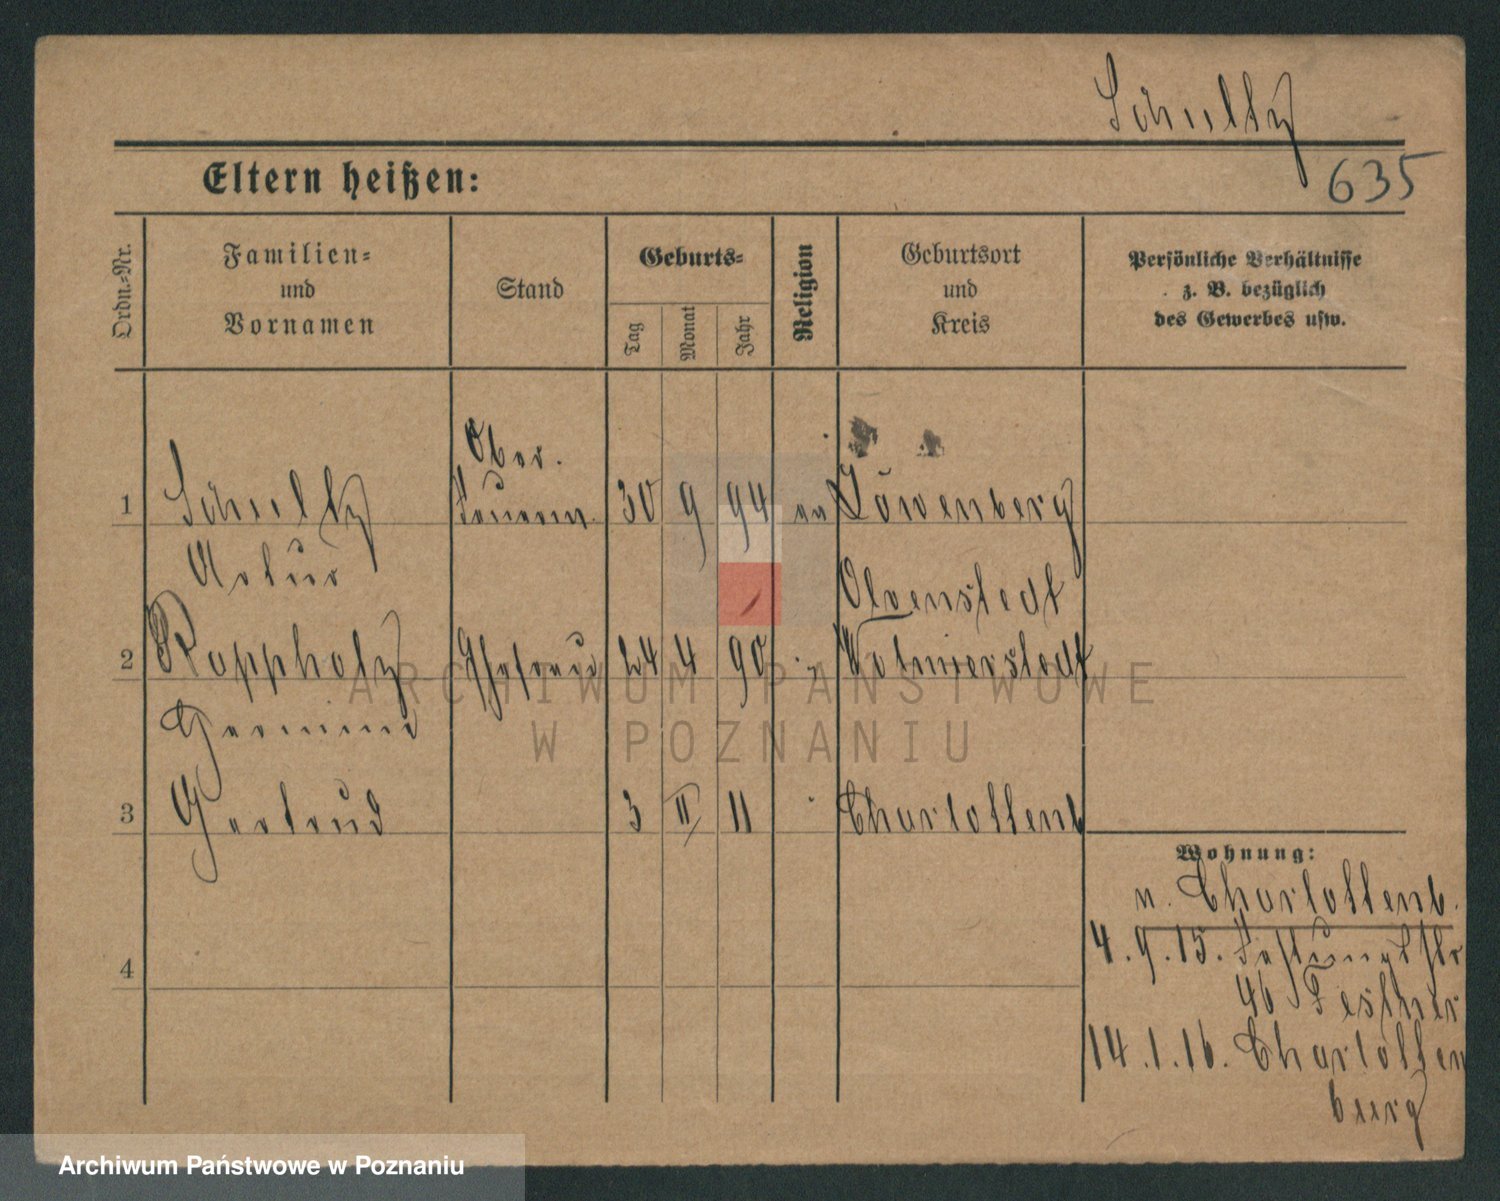 Schultz
635
Eltern heißen:
Ordn.-Nr.
Familien-
und
Vornamen
Stand
Geburts-
Tag
Monat
Jahr
Religion
Geburtsort
und
Kreis
Persönliche Verhältnisse
z. B. bezüglich
des Gewerbes usw.
Ober.
1 Schultz Feuerw. 30 9 94 ev Löwenberg
Artur
Olvenstedt
2 Rappholz Ehefrau 24 4 90 " Wolmirstedt
3 Gertrud 3 II 11 Charlottenb
Wohnung:
v. Charlottenb.
4.9.15. Festungsstr
46
4
14.1.16. Charlotten
burg
ARCHIWUM PAŃSTWOWE
W POZNANIU
Archiwum Państwowe w Poznaniu